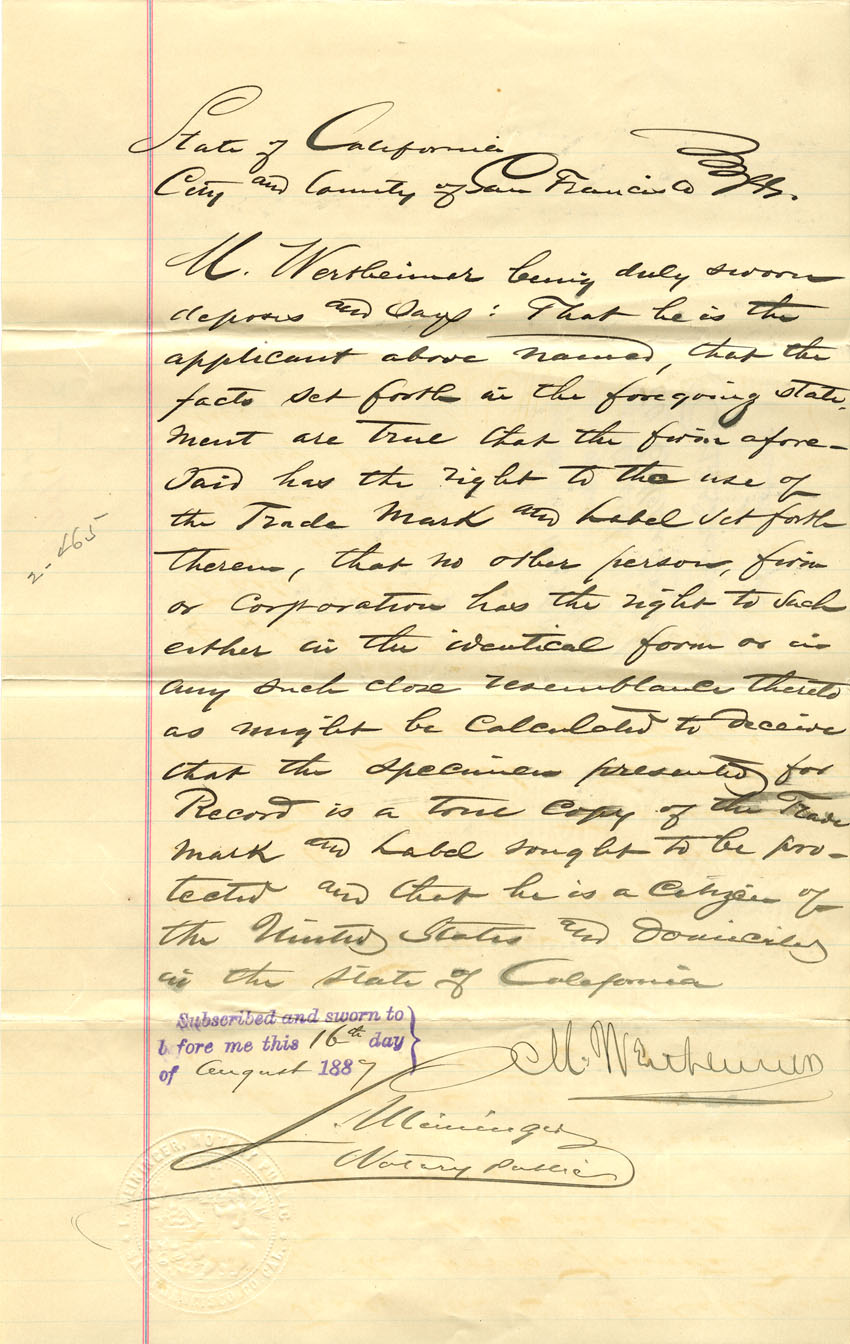 State of California
City and County of San Francisco } ss.
M. Wertheimer being duly sworn
deposes and says: That he is the
applicant above named, that the
facts set forth in the foregoing state-
ment are true that the firm afore-
said has the right to the use of
the Trade Mark and Label set forth
therein, that no other person, firm
or corporation has the right to such
either in the identical form or in
any such close resemblance thereto
as might be calculated to deceive
that the specimen presented for
Record is a true copy of the Trade
Mark and Label sought to be pro-
tected and that he is a citizen of
the United States and domiciled
in the State of California
Subscribed and sworn to
before me this 16th day
of August 1889
M. Wertheimer
J. Meininger
Notary Public
2-465
J. MEININGER, NOTARY PUBLIC